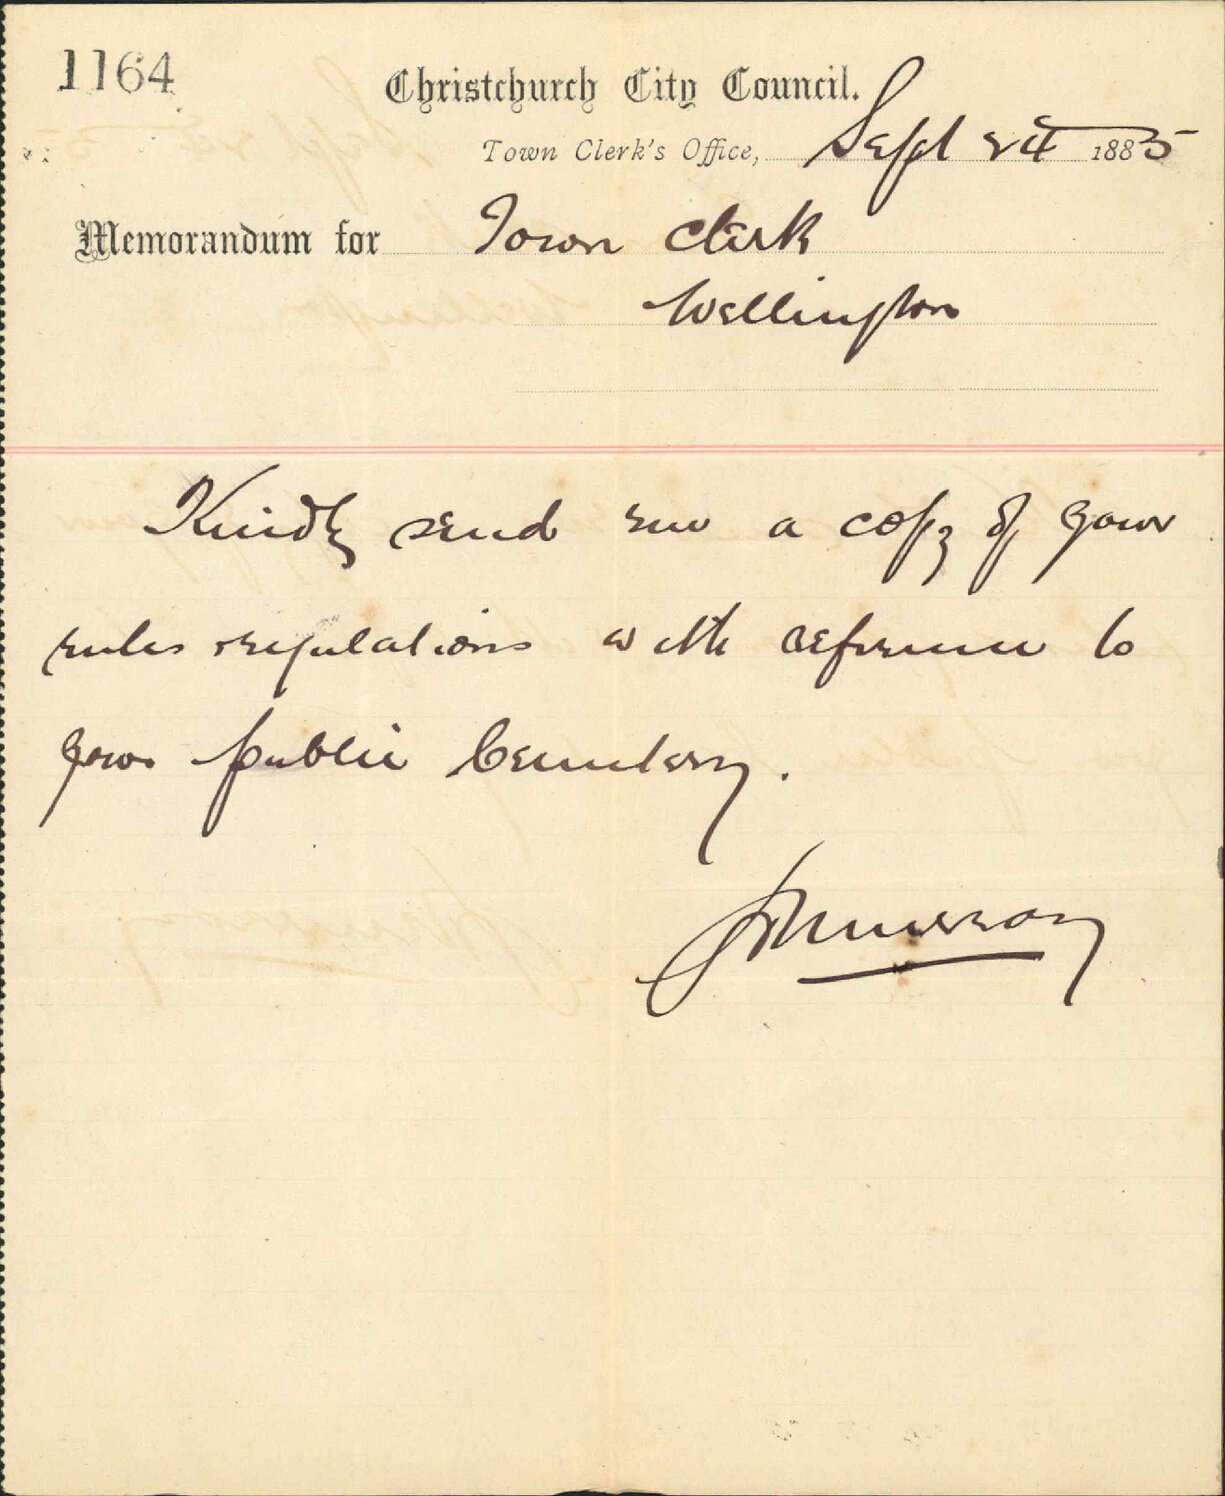 1164
Christchurch City Council.
Town Clerk's Office, Sept 24 1885
Memorandum for Town Clerk
Wellington
Kindly send me a copy of your
rules regulations with reference to
your public Cemetery.